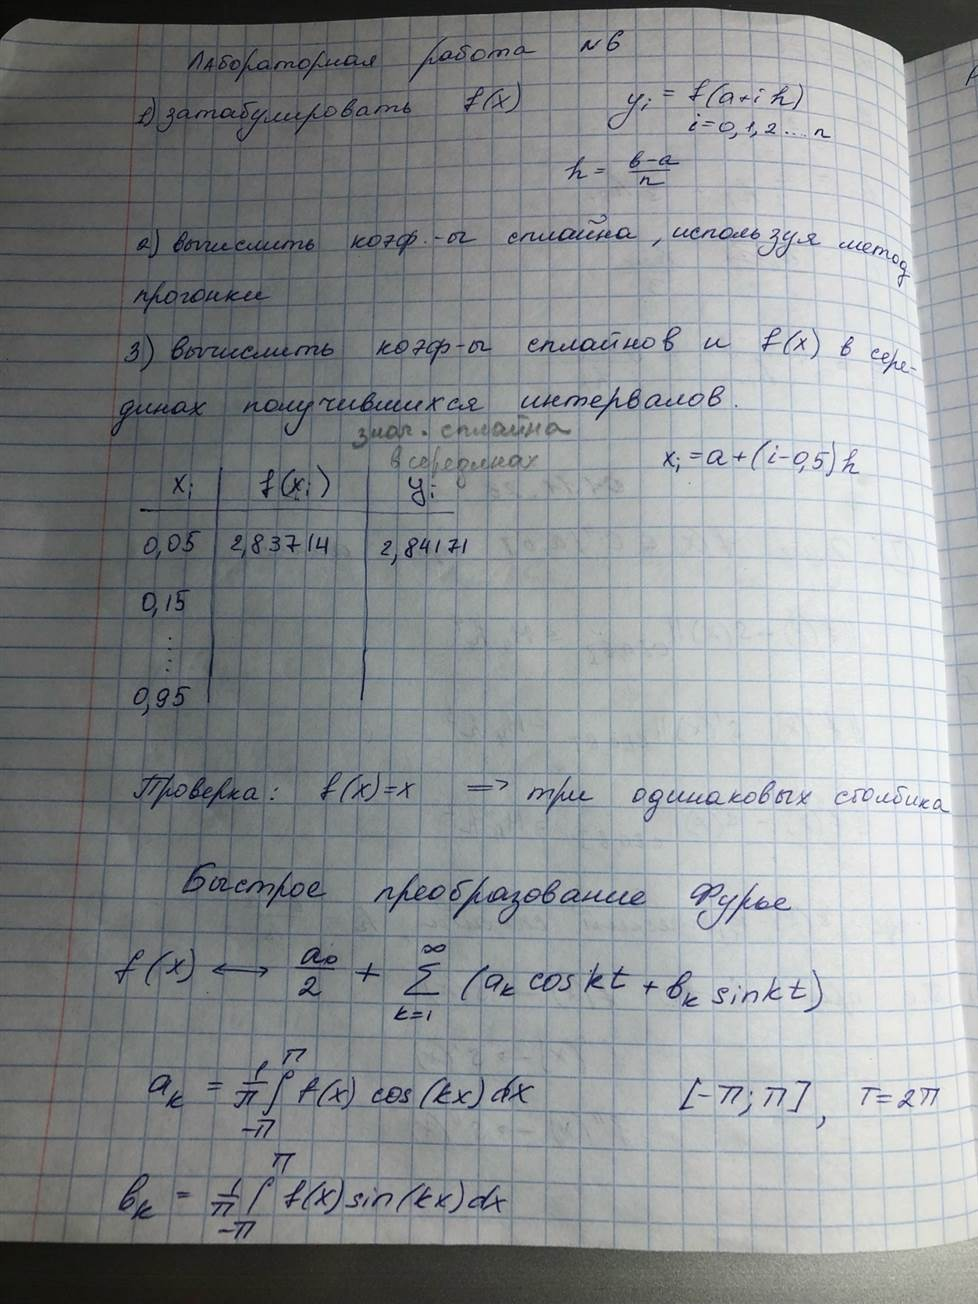 Лабораторная работа №6
1) затабулировать f(x) yᵢ = f(a+ih)
i=0,1,2...n
h = (в-а)/n
2) вычислить коэф.-ы сплайна, используя метод
прогонки
3) вычислить коэф-ы сплайнов и f(x) в сере-
динах получившихся интервалов.
знач. сплайна
в серединах
xᵢ = a+(i-0,5)h
xᵢ f(xᵢ) yᵢ
0,05 2,83714 2,84171
0,15
⋮
0,95
Проверка: f(x)=x => три одинаковых столбика
Быстрое преобразование Фурье
f(x) ↔ a₀/2 + ∑_{k=1}^{∞} (aₖ cos kt + вₖ sin kt)
aₖ = 1/π ∫_{-π}^{π} f(x) cos(kx) dx [-π; π], T=2π
вₖ = 1/π ∫_{-π}^{π} f(x) sin(kx) dx